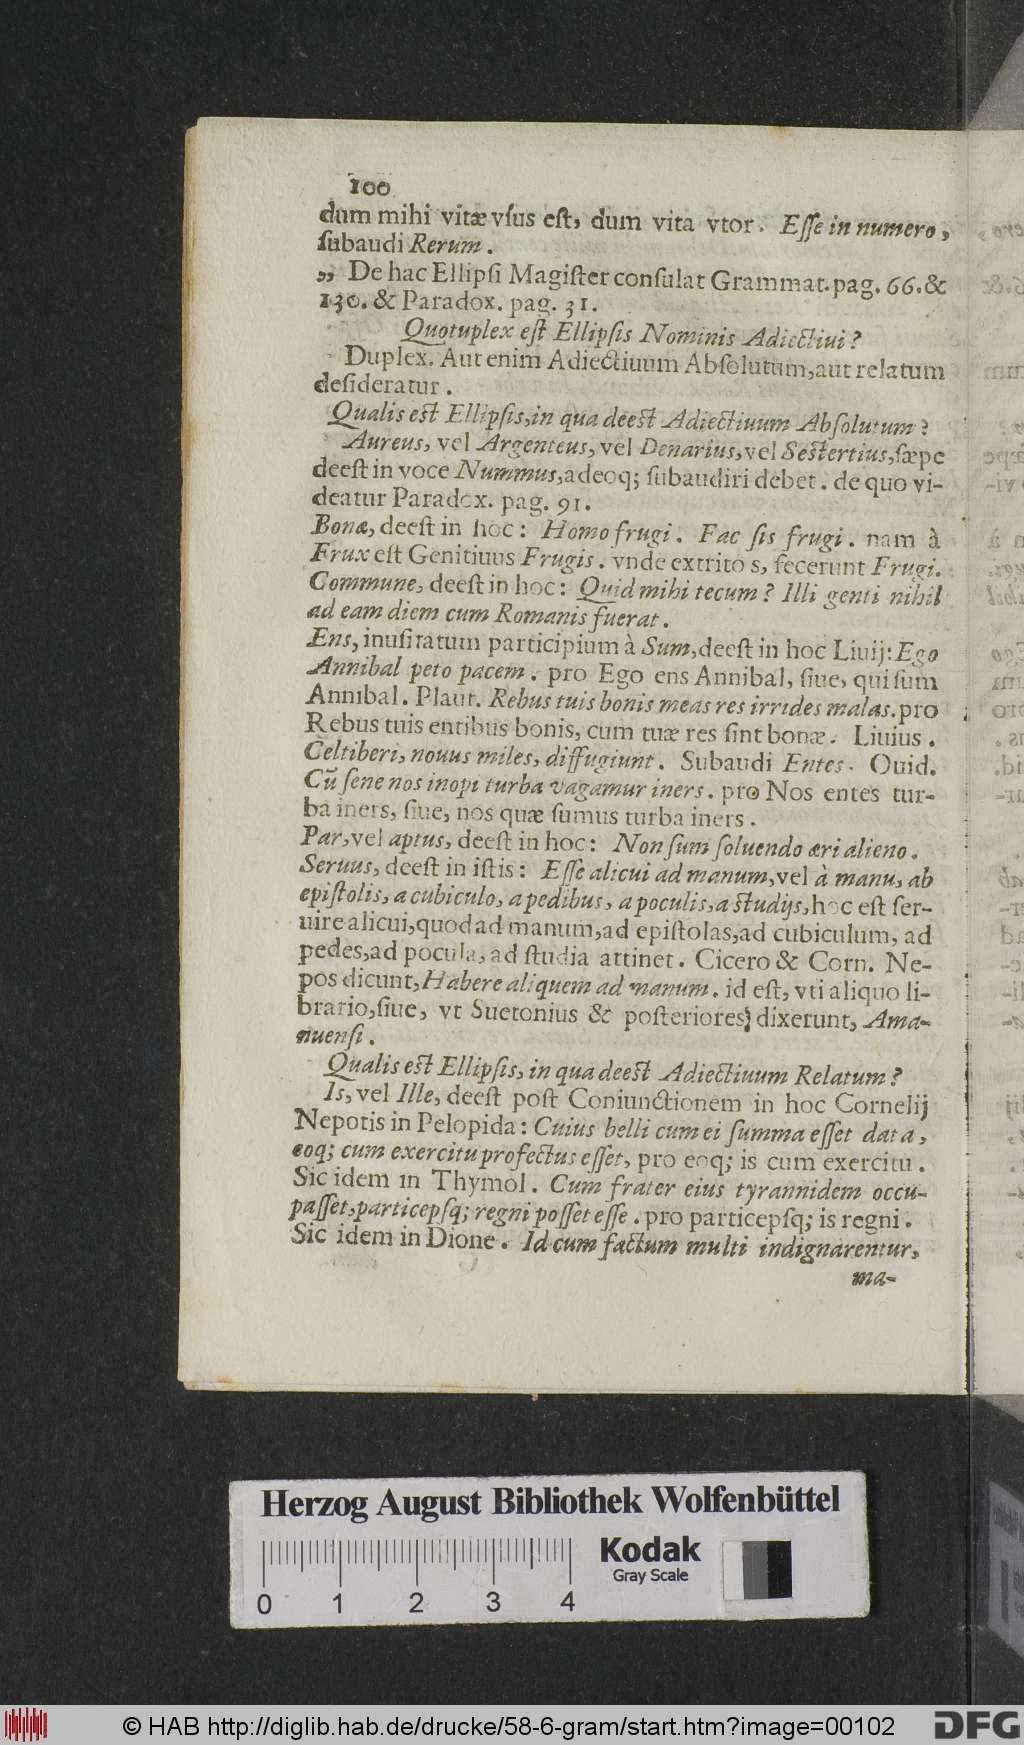 100
dum mihi vitæ vſus eſt, dum vita vtor. Eſſe in numero,
ſubaudi Rerum.
„ De hac Ellipſi Magiſter conſulat Grammat. pag. 66. &
130. & Paradox. pag. 31.
Quotuplex eſt Ellipſis Nominis Adiectiui?
Duplex. Aut enim Adiectiuum Abſolutum, aut relatum
deſideratur.
Qualis eſt Ellipſis, in qua deeſt Adiectiuum Abſolutum?
Aureus, vel Argenteus, vel Denarius, vel Seſtertius, ſæpe
deeſt in voce Nummus, adeoq; ſubaudiri debet. de quo vi-
deatur Paradox. pag. 91.
Bonæ, deeſt in hoc: Homo frugi. Fac ſis frugi. nam à
Frux eſt Genitiuus Frugis. vnde extrito s, fecerunt Frugi.
Commune, deeſt in hoc: Quid mihi tecum? Illi genti nihil
ad eam diem cum Romanis fuerat.
Ens, inuſitatum participium à Sum, deeſt in hoc Liuij: Ego
Annibal peto pacem. pro Ego ens Annibal, ſiue, qui ſum
Annibal. Plaut. Rebus tuis bonis meas res irrides malas. pro
Rebus tuis entibus bonis, cum tuæ res ſint bonæ. Liuius.
Celtiberi, nouus miles, diffugiunt. Subaudi Entes. Ouid.
Cũ ſene nos inopi turba vagamur iners. pro Nos entes tur-
ba iners, ſiue, nos quæ ſumus turba iners.
Par, vel aptus, deeſt in hoc: Non ſum ſoluendo æri alieno.
Seruus, deeſt in iſtis: Eſſe alicui ad manum, vel à manu, ab
epiſtolis, a cubiculo, a pedibus, a poculis, a ſtudijs, hoc eſt ſer-
uire alicui, quod ad manum, ad epiſtolas, ad cubiculum, ad
pedes, ad pocula, ad ſtudia attinet. Cicero & Corn. Ne-
pos dicunt, Habere aliquem ad manum. id eſt, vti aliquo li-
brario, ſiue, vt Suetonius & poſteriores dixerunt, Ama-
nuenſi.
Qualis eſt Ellipſis, in qua deeſt Adiectiuum Relatum?
Is, vel Ille, deeſt poſt Coniunctionem in hoc Cornelij
Nepotis in Pelopida: Cuius belli cum ei ſumma eſſet data,
eoq; cum exercitu profectus eſſet, pro eoq; is cum exercitu.
Sic idem in Thymol. Cum frater eius tyrannidem occu-
paſſet, particepſq; regni poſſet eſſe. pro particepſq; is regni.
Sic idem in Dione. Id cum factum multi indignarentur,
ma-
Herzog August Bibliothek Wolfenbüttel
Kodak
Gray Scale
0 1 2 3 4
© HAB http://diglib.hab.de/drucke/58-6-gram/start.htm?image=00102
DFG